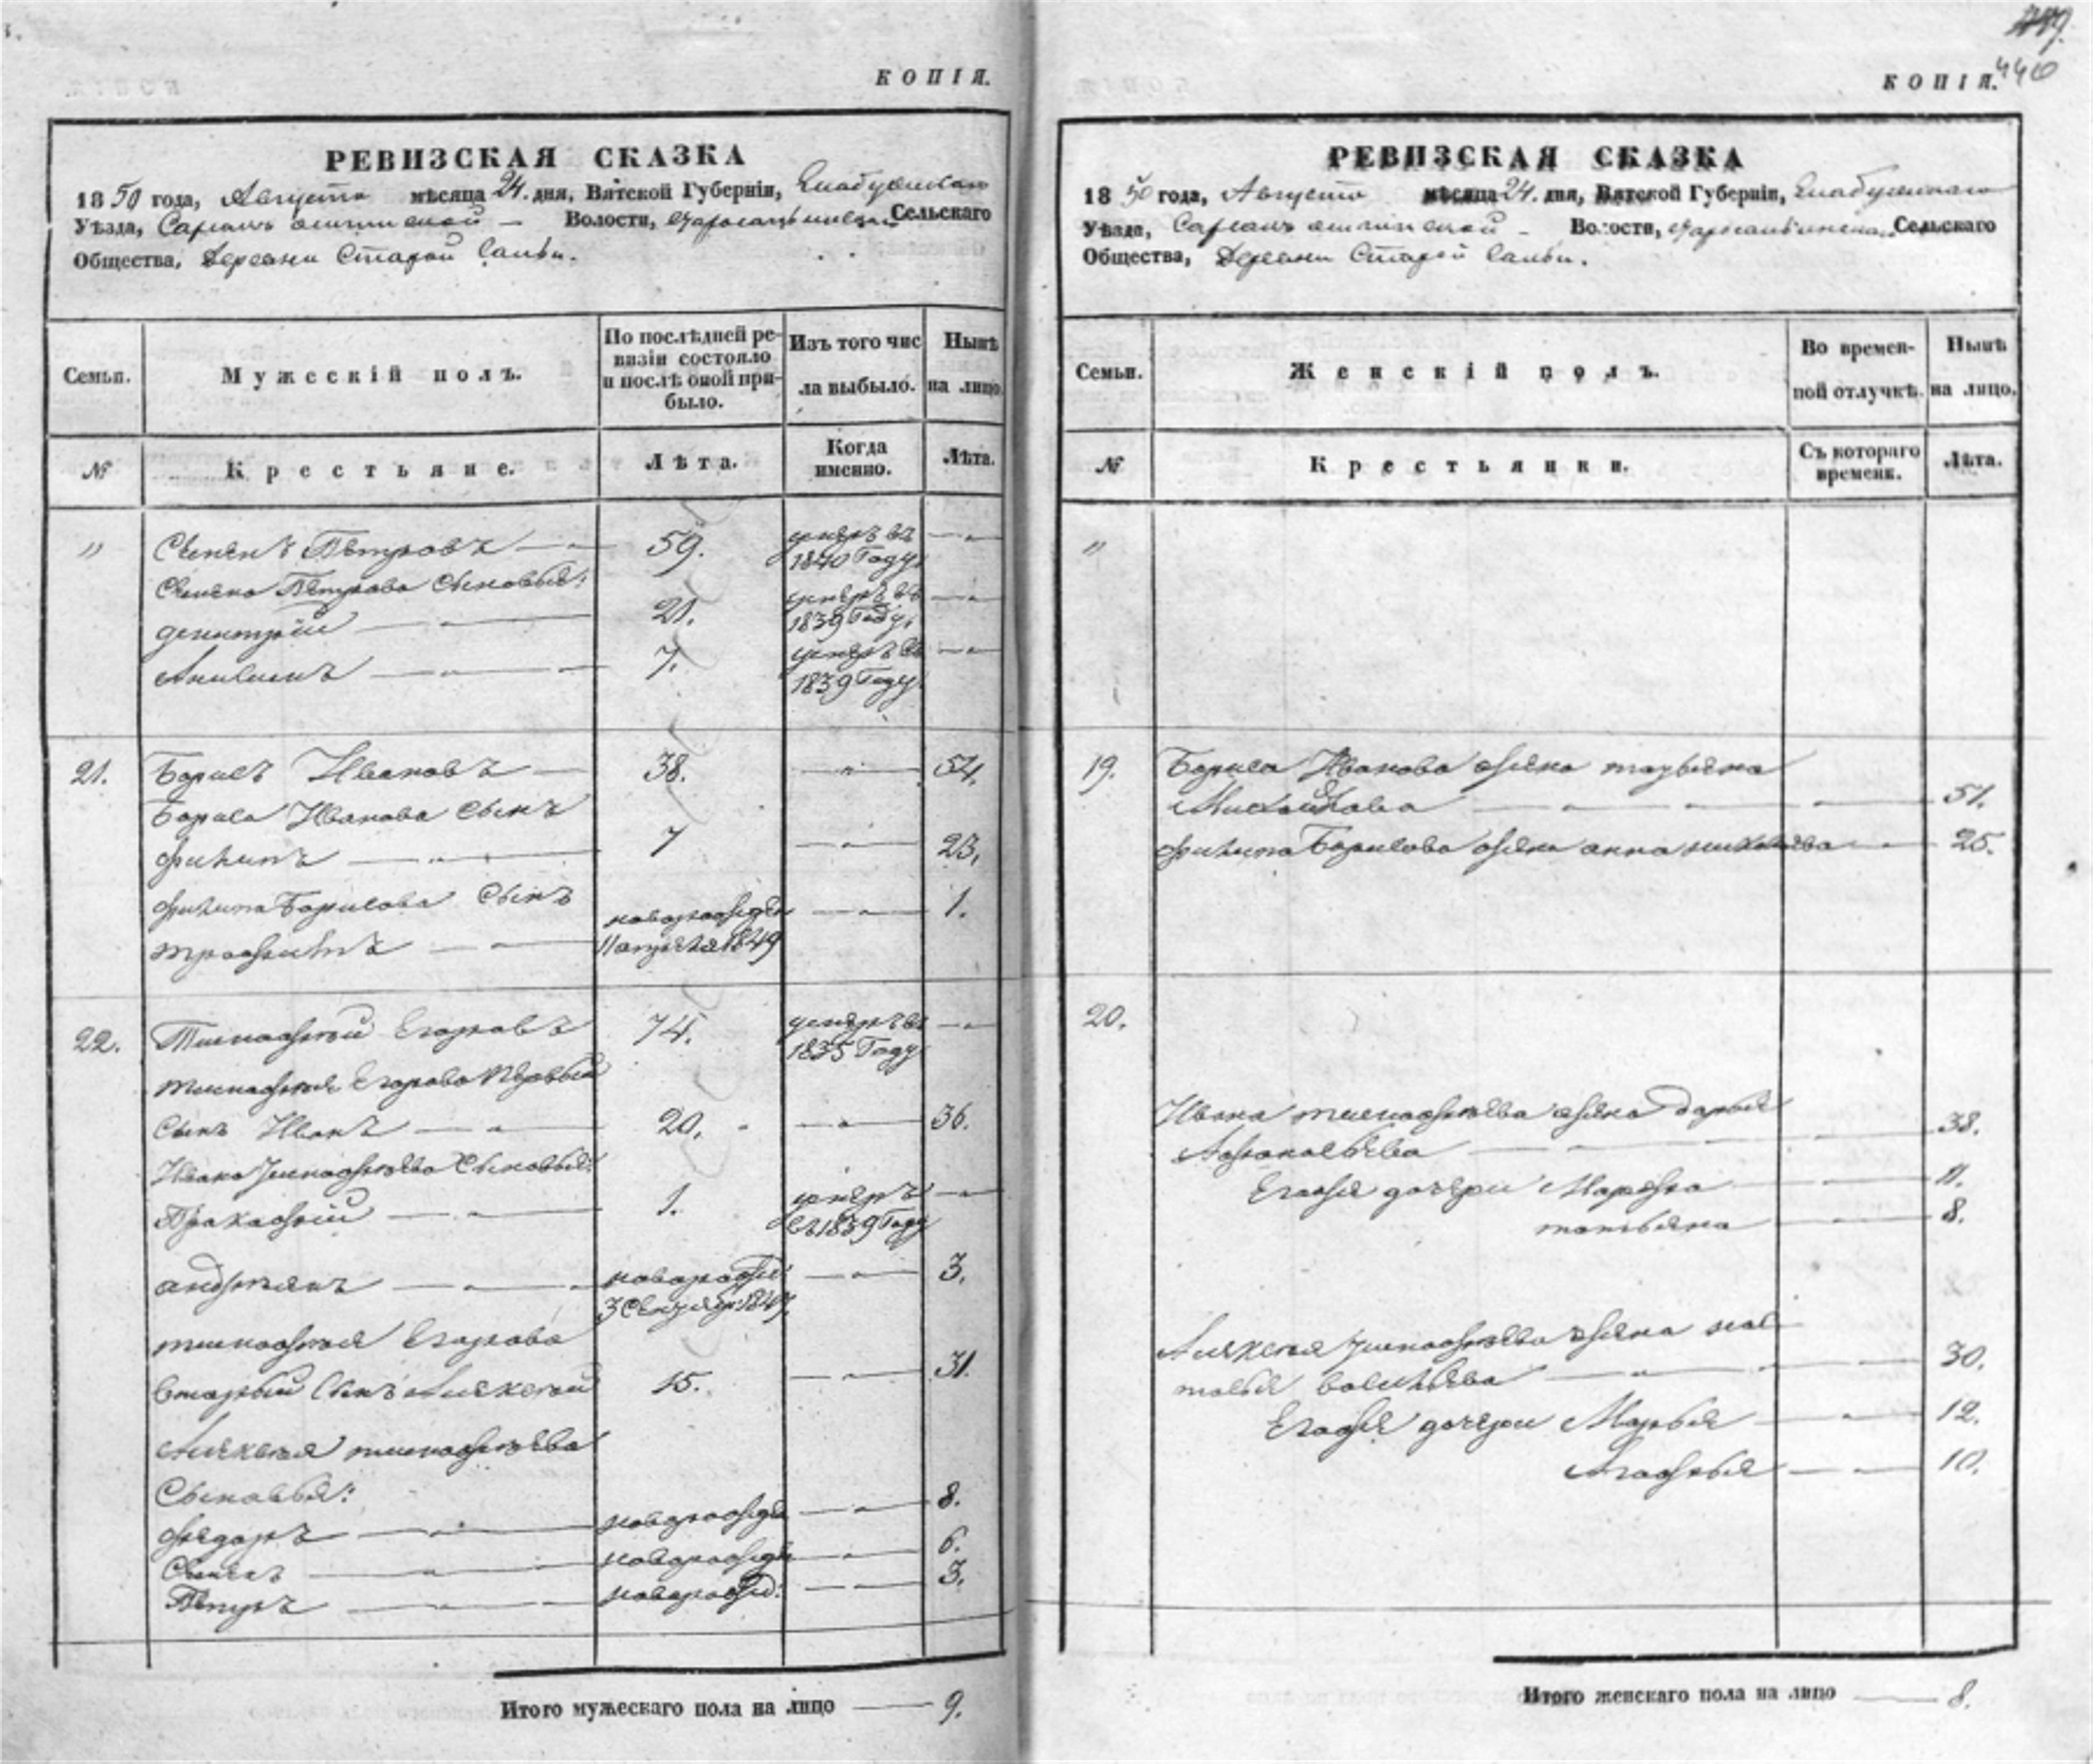 КОПІЯ.
РЕВИЗСКАЯ СКАЗКА
1850 года, Августа мѣсяца 24. дня, Вятской Губерніи, Елабужскаго
Уѣзда, Волости, Сельскаго
Общества, Деревни Старой Сальи.
Семьи.
Мужескій полъ.
По послѣдней ре-
визіи состояло
и послѣ оной при-
было.
Изъ того чис
ла выбыло.
Нынѣ
на лицо.
№
Крестьяне.
Лѣта.
Когда
именно.
Лѣта.
" Семенъ Петровъ — 59. умеръ въ
1840 Году
Семена Петрова сыновья:
Димитрій — 21. умеръ въ
1839 Году
7. умеръ въ
1839 Году
21. Борисъ Ивановъ — 38. — 54.
Бориса Иванова сынъ
Филипъ — 7 — 23.
Филипа Борисова сынъ
Трофимъ — новорожден — 1.
11 апреля 1849
22. Тимофей Егоровъ 74. умеръ въ
1835 Году
Тимофея Егорова первый
сынъ Иванъ — 20. — 36.
Ивана Тимофеева сыновья:
Пракофій — 1. умеръ
въ 1839 Году
андреянъ — новорожд: — 3.
3 Сентяб: 1847
тимофея Егорова
вторый сынъ Алексей 15. — 31.
Алексея тимофеева
Сыновья:
Федоръ — новорожде — 8.
Семенъ — новорожде — 6.
Петръ — новорожд: — 3.
Итого мужескаго пола на лицо — 9.
440
КОПІЯ.
РЕВИЗСКАЯ СКАЗКА
1850 года, Августа мѣсяца 24. дня, Вятской Губерніи, Елабужскаго
Уѣзда, Волости, Сельскаго
Общества, Деревни Старой Сальи.
Семьи.
Женскій полъ.
Во времен-
ной отлучкѣ.
Нынѣ
на лицо.
№
Крестьянки.
Съ котораго
времени.
Лѣта.
"
19. Бориса Иванова жена
Михайлова — 51.
Филипа Борисова жена анна — 25.
20.
Ивана тимофеева жена дарья
Афонасьева — 38.
Егоже дочери Марфа — 11.
татьяна — 8.
Алексея Тимофеева жена на-
талья васильева — 30.
Егоже дочери Марья — 12.
Агафья — 10.
Итого женскаго пола на лицо — 8.